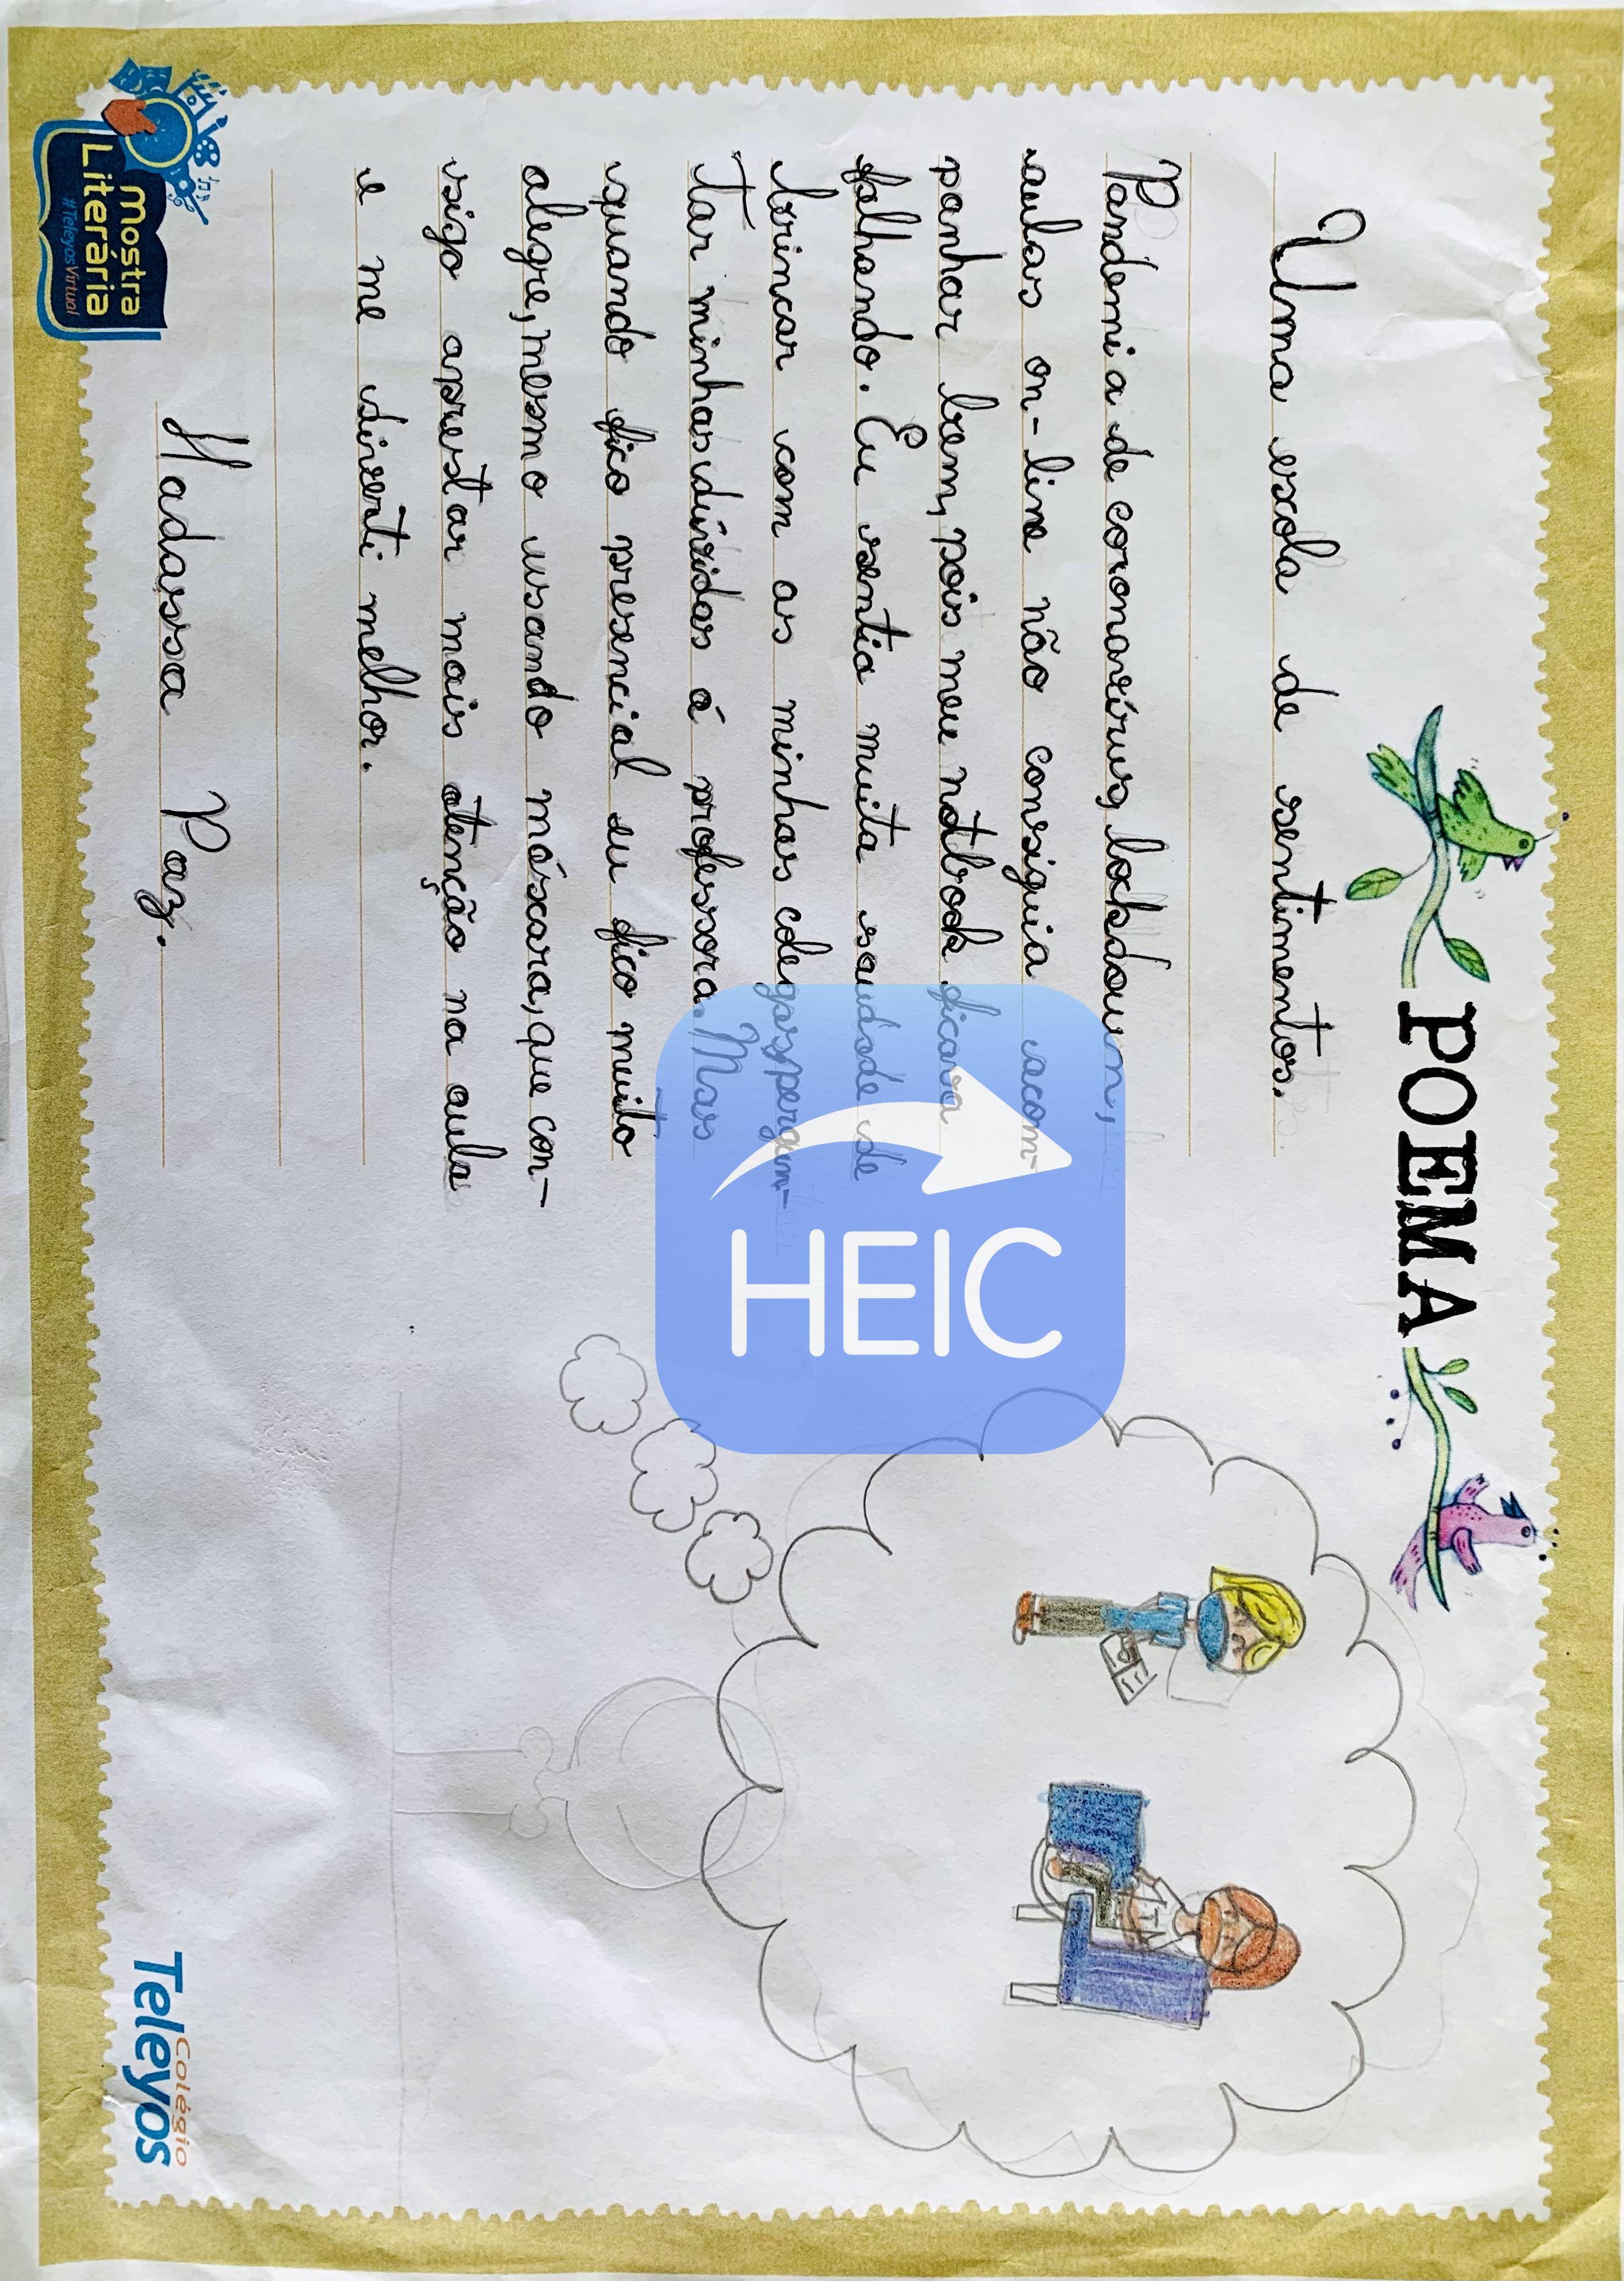 POEMA
Uma escola de sentimentos.
Pandemia de coronavírus, lockdown,
aulas on-line não conseguia acom-
panhar bem, pois meu notbook ficava
falhando. Eu sentia muita saudade de
brincar com as minhas colegas, pergun-
tar minhas dúvidas á professora. Mas
quando fico presencial eu fico muito
alegre, mesmo usando máscara, que con-
sigo aprestar mais atenção na aula
e me diverti melhor.
Hadassa Paz.
mostra
Literária
#TeleyosVirtual
Colégio
Teleyos
HEIC